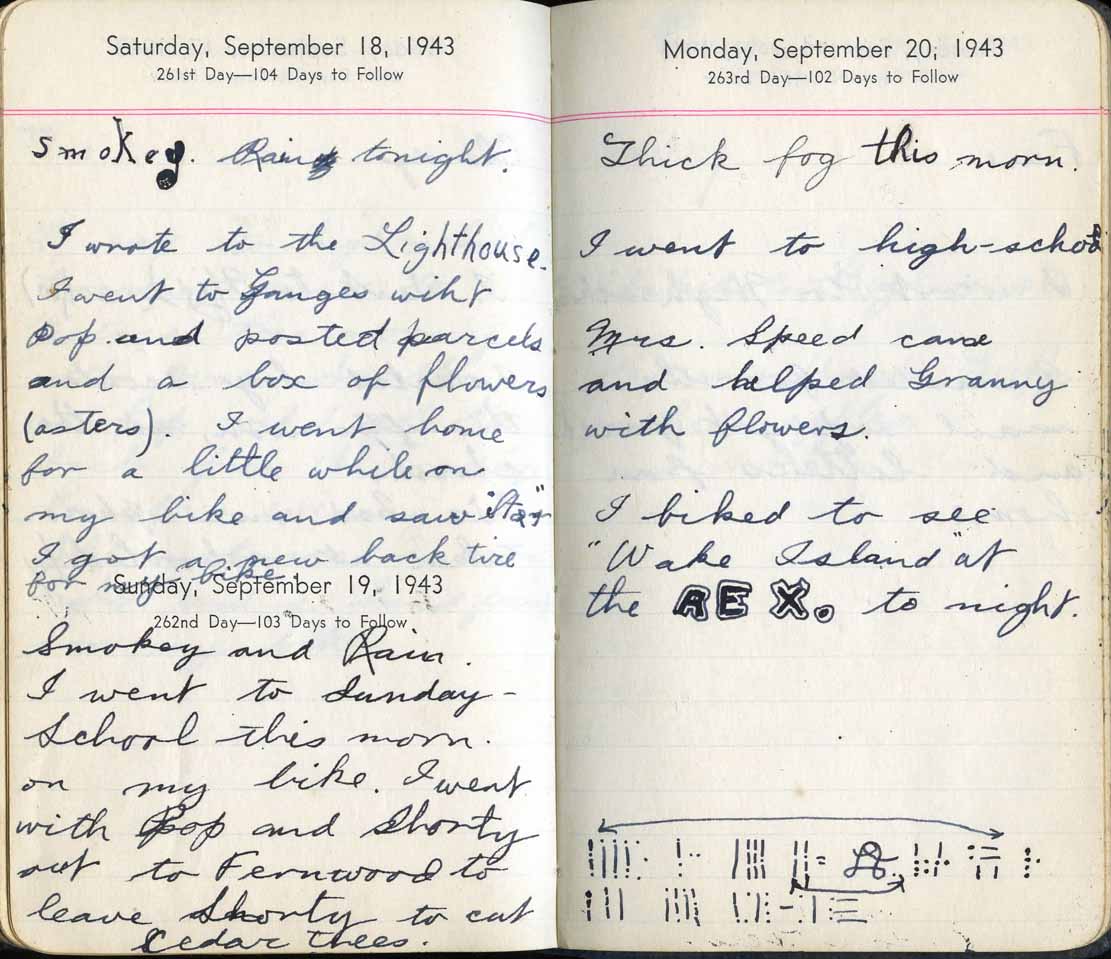 Saturday, September 18, 1943
261st Day—104 Days to Follow
Smokey. Rain tonight.
I wrote to the Lighthouse.
I went to Ganges wiht
Pop and posted parcels
and a box of flowers
(asters). I went home
for a little while on
my bike and saw
I got a new back tire
for my bike.
Sunday, September 19, 1943
262nd Day—103 Days to Follow
Smokey and Rain.
I went to Sunday-
School this morn.
on my bike. I went
with Pop and Shorty
out to Fernwood to
leave Shorty to cut
cedar trees.
Monday, September 20, 1943
263rd Day—102 Days to Follow
Thick fog this morn.
I went to high-school
Mrs. Speed came
and helped Granny
with flowers.
I biked to see
"Wake Island" at
the REX. to night.